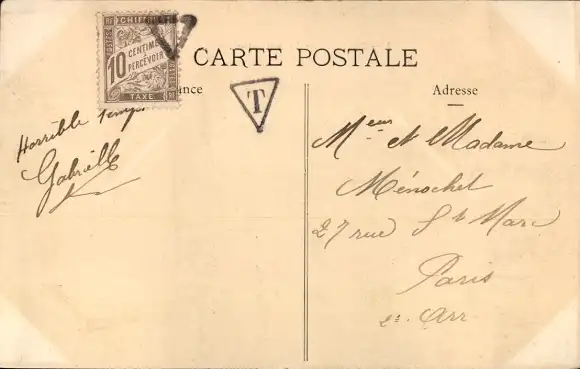 POSTES RF CHIFFRE RF
10 CENTIMES
A PERCEVOIR
TAXE
CARTE POSTALE
T
ance
Adresse
Horrible temps
Gabrielle
Meur et Madame
Ménochet
27 rue St Marc
Paris
2e Arr